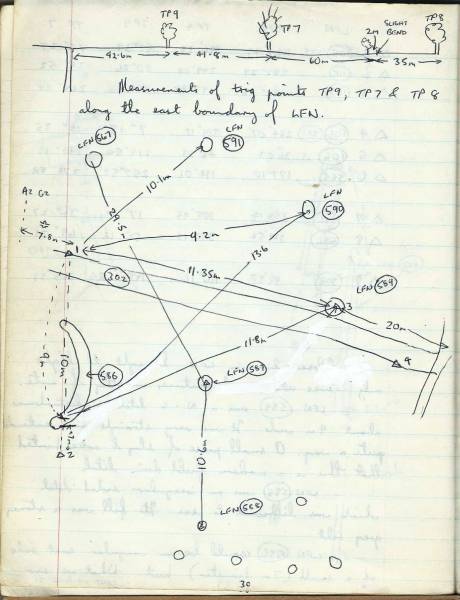 TP9 TP7 2M SLIGHT BEND TP8
42.6m 41.8m 60m 35m
Measurements of trig points TP9, TP7 & TP8
along the east boundary of LFN.
LFN 567
LFN 591
10.1m
29.5m
LFN 590
A2 G2
7.8m
1
4.2m
13.6
302
11.35m
LFN 589
3
20m
4
11.8m
9m
10m
586
LFN 587
2
10.6m
LFN 588
38